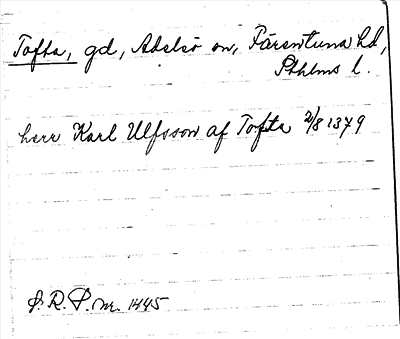 Tofta, gd, Adelsö sn, Färentuna hd,
Sthlms l.
herr Karl Ulfsson af Tofta 2/8 1379
S. R. P. nr. 1445